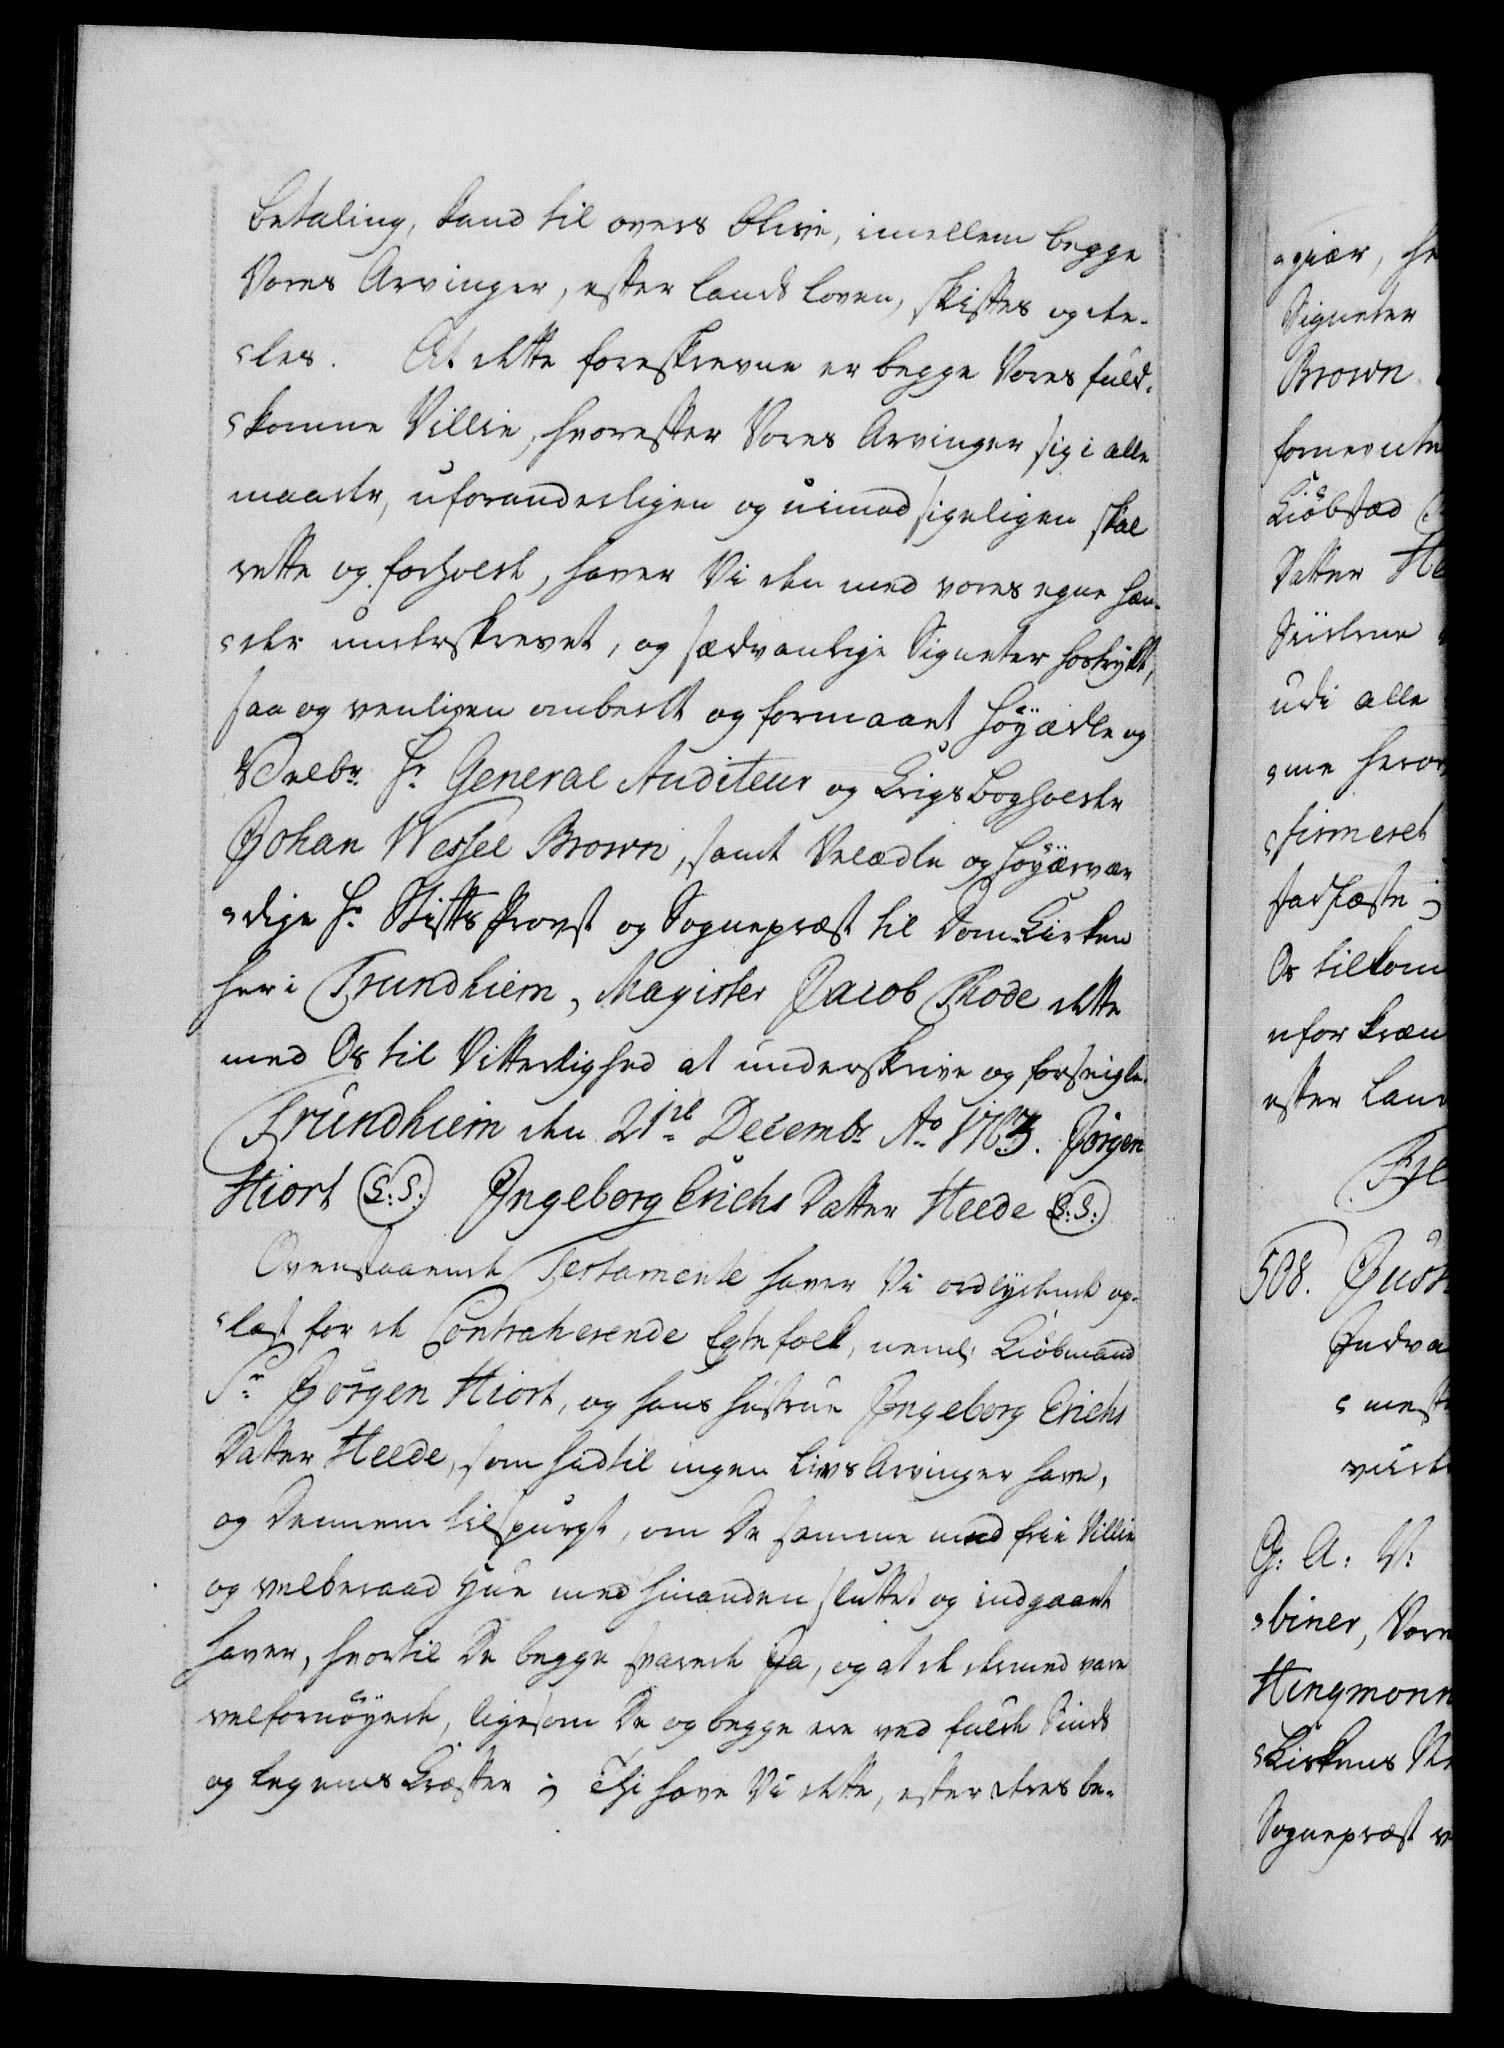 betaling, kand til overs blive, imellem begge
Vores Arvinger, efter Lands Loven, skiftes og de-
les. At dette foreskrevne er begge Vores fuld-
komne Villie, hvorefter Vores Arvinger sig i alle
maader, uforanderligen og uimodsigeligen skal
rette og forholde, haver Vi den med vores egne Hæn-
der underskrevet, og sædvanlige Signeter hostrykt,
saa og venligen ombedt og formaaet Höyædle og
Velbr. Hr. General Auditeur og Krigs Bogholder
Johan Wessel Brown, samt Velædle og Höyærvær
dige Hr. Stifts Provst og Sognepræst til Dom-Kirken
her i Trundhiem, Magister Jacob Rode dette
med Os til Vitterlighed at underskrive og forseigle.
Trundhiem den 21de Decembr. Ao. 1763. Jörgen
Hiort (L.S.) Ingeborg Erichs Datter Heede (L.S.)
Ovenstaaende Testamente haver Vi ordlydende op-
læst for de Contraherende Egtefolk, neml: Kiöbmand
Sr. Jörgen Hiort, og hans Hustrue Ingeborg Erichs
Datter Heede, som hidtil ingen Livs Arvinger have,
og Dennem tilspurgt, om De samme med frie Villie
og velberaad Hue med hinanden sluttet og indgaaet
haver, hvortil De begge svarede Ja, og at de dermed vare
velfornöyede, ligesom De og begge ere ved fulde Sinds
og Legems Kræfter; Thi have Vi dette, efter deres be-
giær, he
Signeter
Brown
fornevnte
Kiöbstæd
Datter He
udi alle
me herov
firmeret
stadfæste;
Os tilkom
efter Land
508. Just
G: A: V:
biner, Vore
Kirkens
Sognepræst v